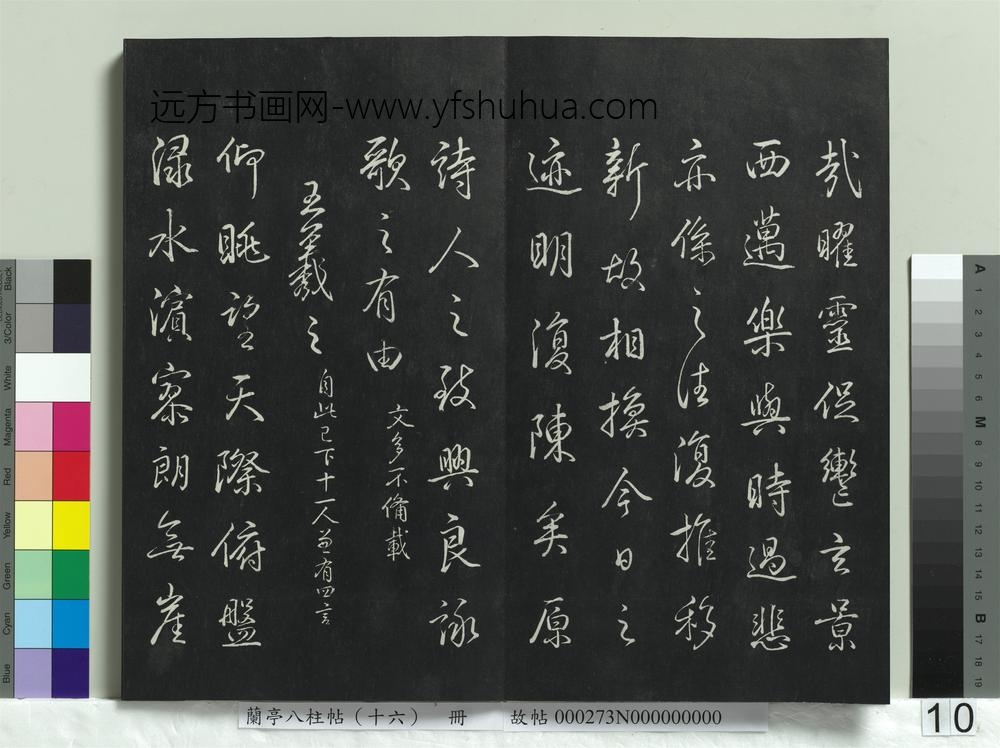 远方书画网-www.yfshuhua.com
哉曜靈促轡玄景
西邁樂與時過悲
亦係之往復推移
新故相換今日之
迹明復陳矣原
詩人之致興良詠
歌之有由
文多不備載
王羲之
自此已下十一人並有四言
仰眺望天際俯盤
淥水濱寥朗無崖
蘭亭八柱帖（十六） 冊 故帖 000273N000000000
10
Black
3/Color
White
Magenta
Red
Yellow
Green
Cyan
Blue
A 1 2 3 4 5 6 M 8 9 10 11 12 13 14 15 B 17 18 19